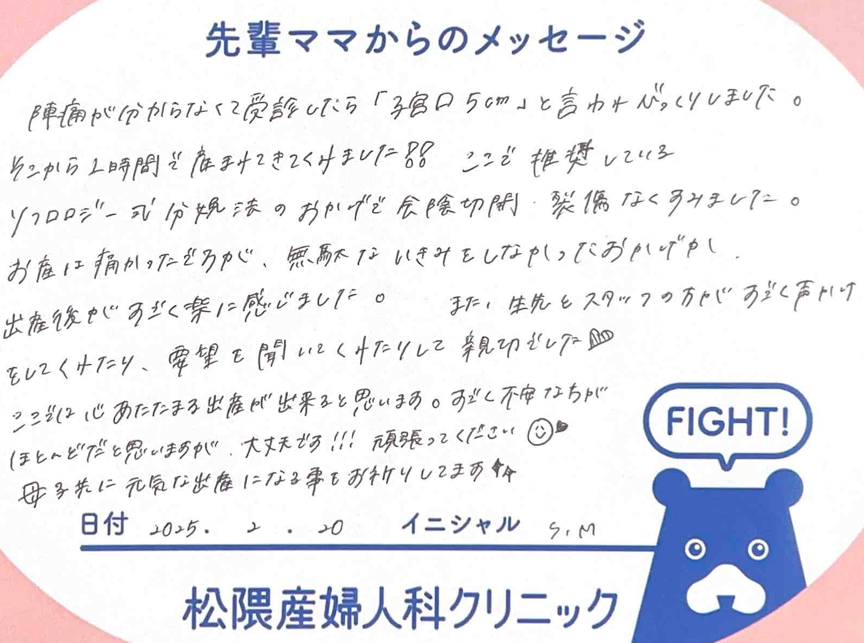 先輩ママからのメッセージ
陣痛が分からなくて受診したら「子宮口5cm」と言われびっくりしました。
そこから1時間で産まれてきてくれました!! ここで推奨している
ソフロロジー式分娩法のおかげで会陰切開・裂傷なくすみました。
お産は痛かったですが、無駄ないきみをしなかったおかげか、
出産後がすごく楽に感じました。 また、先生とスタッフの方がすごく声かけ
をしてくれたり、要望を聞いてくれたりして親切でした
ここでは心あたたまる出産が出来ると思います。すごく不安な方が
ほとんどだと思いますが、大丈夫です!!! 頑張ってください
母子共に元気な出産になる事をお祈りしてます
FIGHT!
日付 2025. 2 . 20 イニシャル S.M
松隈産婦人科クリニック